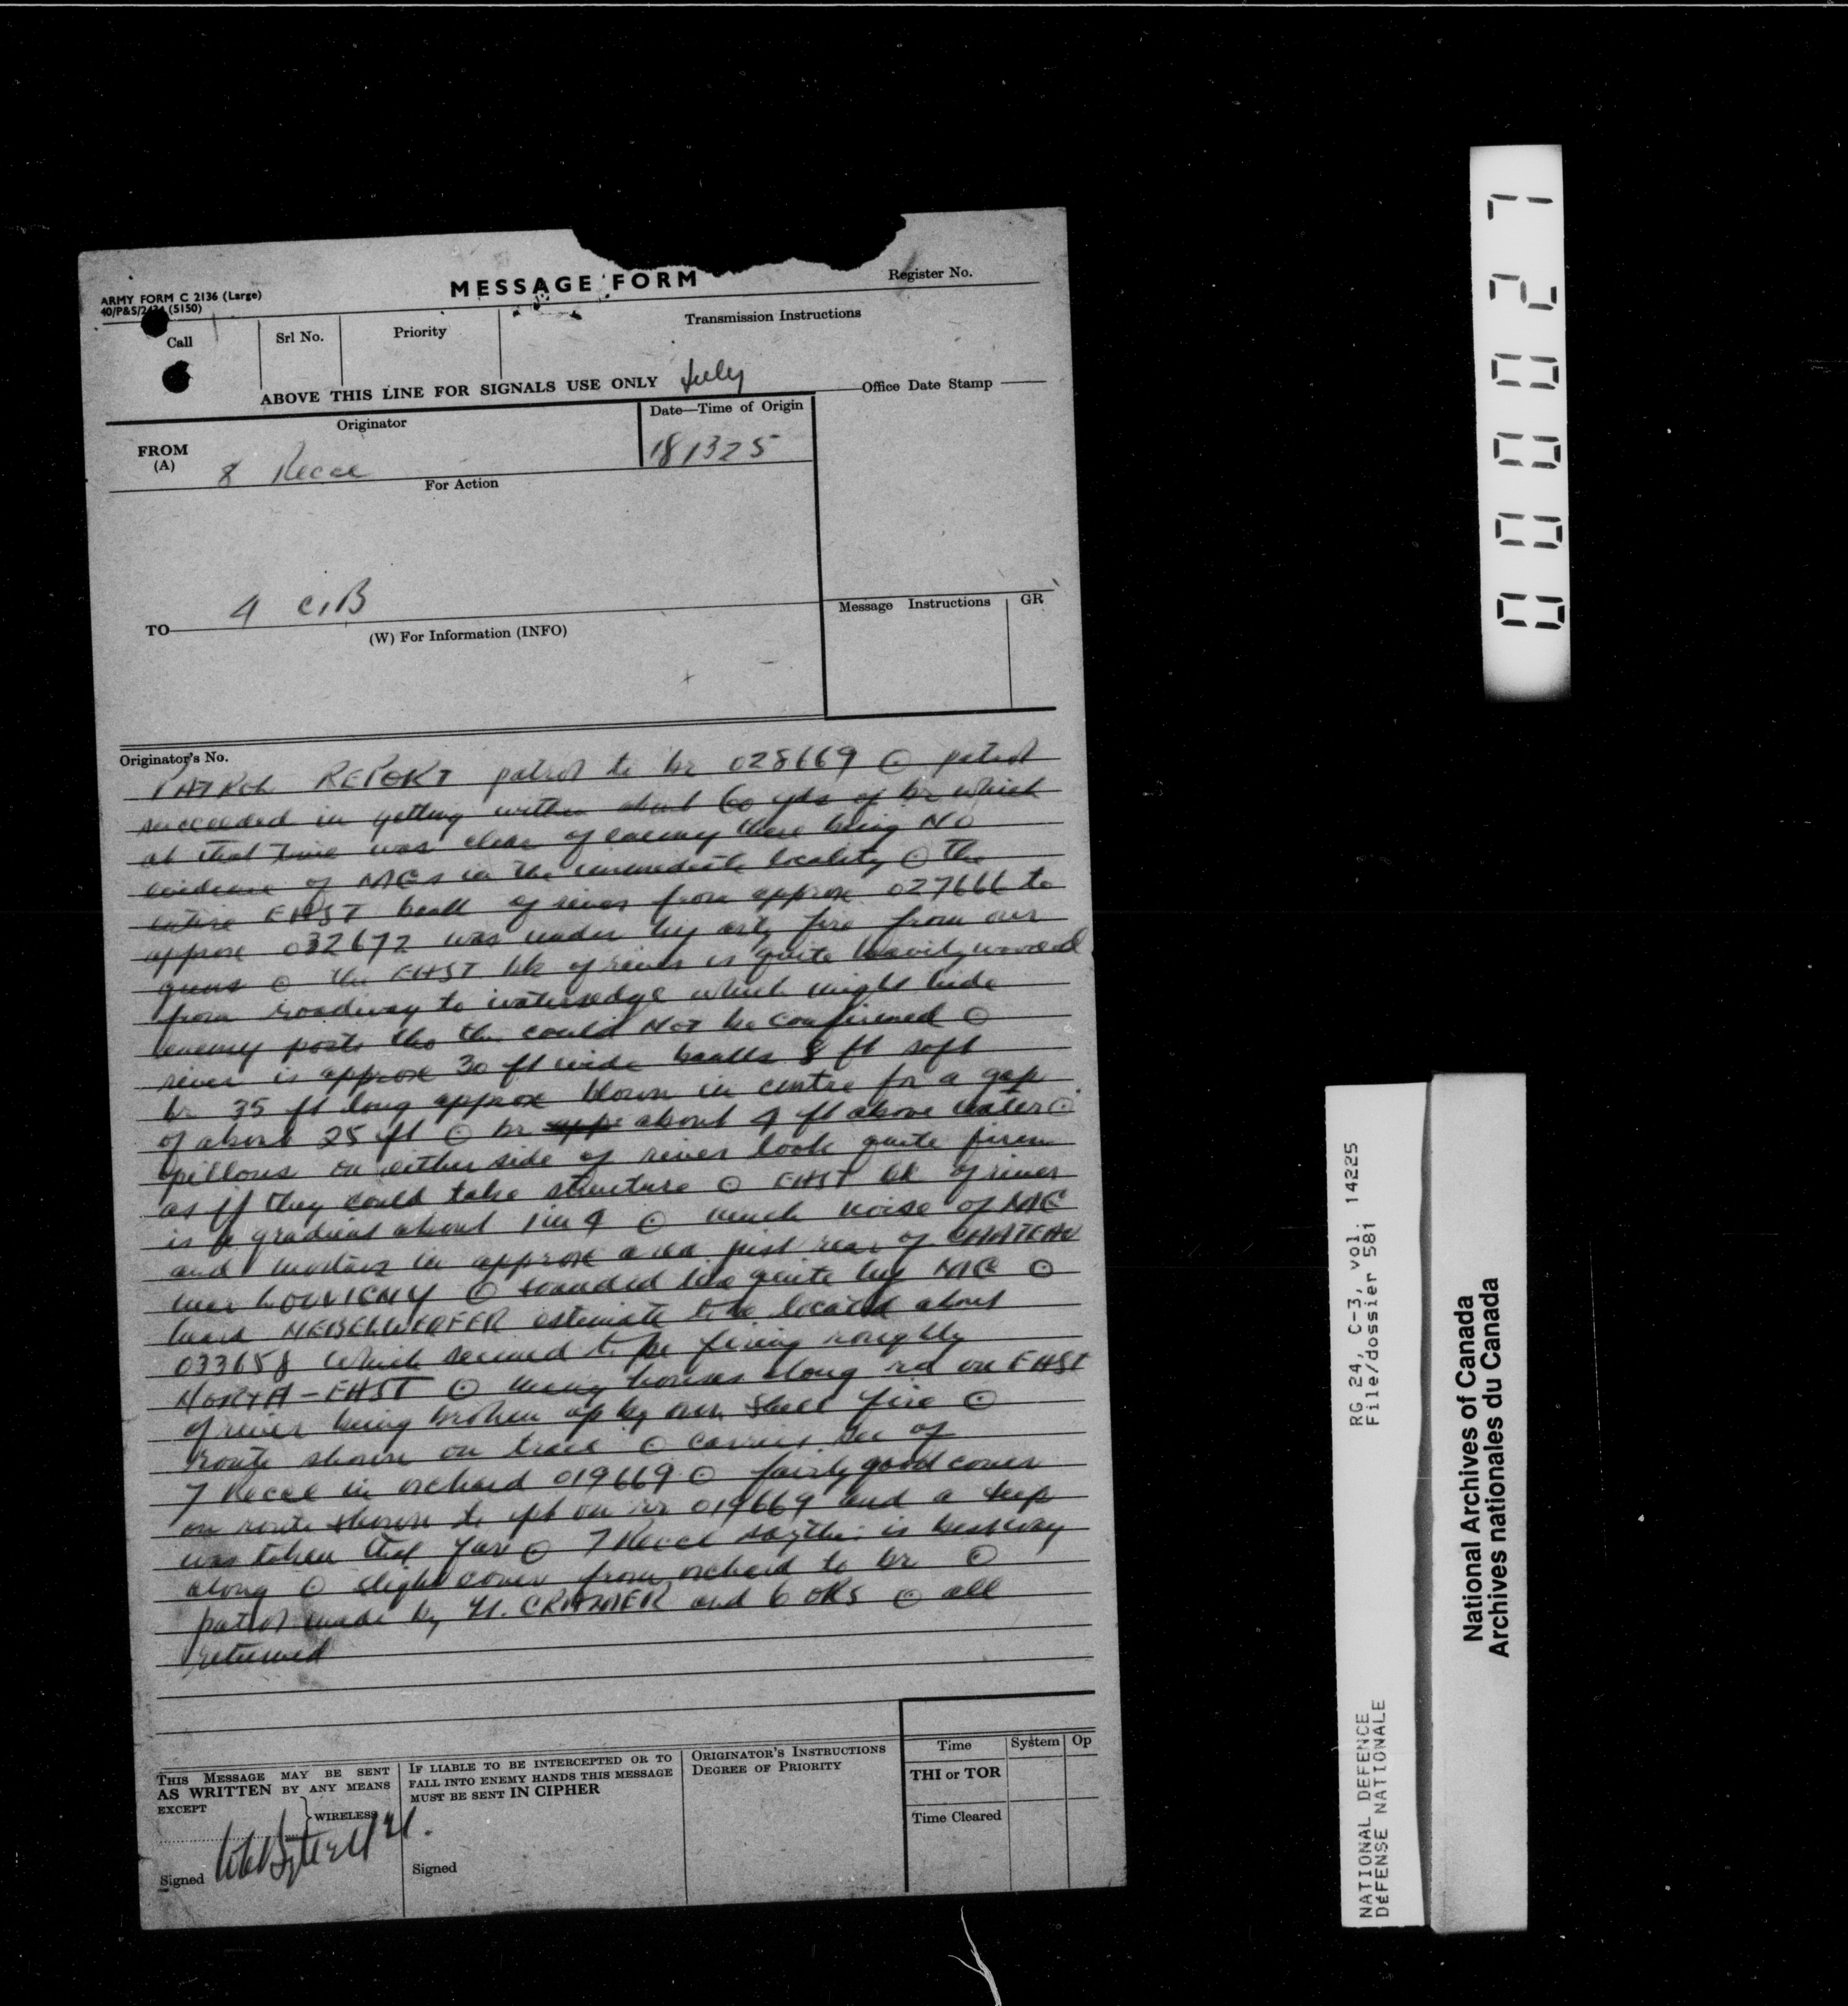 MESSAGE FORM
Register No.
ARMY FORM C 2136 (Large)
40/P&S/ (5150)
Call
Srl No.
Priority
Transmission Instructions
ABOVE THIS LINE FOR SIGNALS USE ONLY
July
Office Date Stamp
Originator
Date—Time of Origin
FROM
(A)
8 Recce
181325
For Action
4 CIB
TO
Message Instructions
GR
(W) For Information (INFO)
Originator's No.
PATROL REPORT patrol to br 028669 ⊙ patrol
succeeded in getting within about 60 yds of br which
at that time was clear of enemy there being NO
evidence of MGs in the immediate locality ⊙ the
entire EAST bank of river from approx 027666 to
approx 032672 was under hy arty fire from our
guns ⊙ the EAST bk of river is quite heavily wooded
from roadway to watersedge which might hide
enemy posts tho this could NOT be confirmed ⊙
river is approx 30 ft wide banks 8 ft soft
br 35 ft long approx blown in centre for a gap
of about 25 ft ⊙ br about 4 ft above water ⊙
pillons on either side of river look quite firm
as if they could take structure ⊙ EAST bk of river
is a gradient about 1 in 4 ⊙ much noise of MG
and mortars in approx area just rear of CHATEAU
near LOUVIGNY ⊙ sounded like quite hy MG ⊙
heard NEBELWERFER estimate to be located about
033658 which seemed to be firing roughly
NORTH-EAST ⊙ many houses along rd on EAST
of river being broken up by our shell fire ⊙
route shown on trace ⊙ carrier sec of
7 Recce in orchard 019669 ⊙ fairly good cover
on route shown to on rr 019669 and a jeep
was taken that far ⊙ 7 Recce say this is best way
along ⊙ slight cover from orchard to br ⊙
patrol made by Lt. CRAMER and 6 ORS ⊙ all
returned
THIS MESSAGE MAY BE SENT
AS WRITTEN BY ANY MEANS
EXCEPT
WIRELESS
Signed
IF LIABLE TO BE INTERCEPTED OR TO
FALL INTO ENEMY HANDS THIS MESSAGE
MUST BE SENT IN CIPHER
Signed
ORIGINATOR'S INSTRUCTIONS
DEGREE OF PRIORITY
Time
System
Op
THI or TOR
Time Cleared
000027
RG 24, C-3, vol. 14225
File/dossier 581
NATIONAL DEFENCE
DéFENSE NATIONALE
National Archives of Canada
Archives nationales du Canada